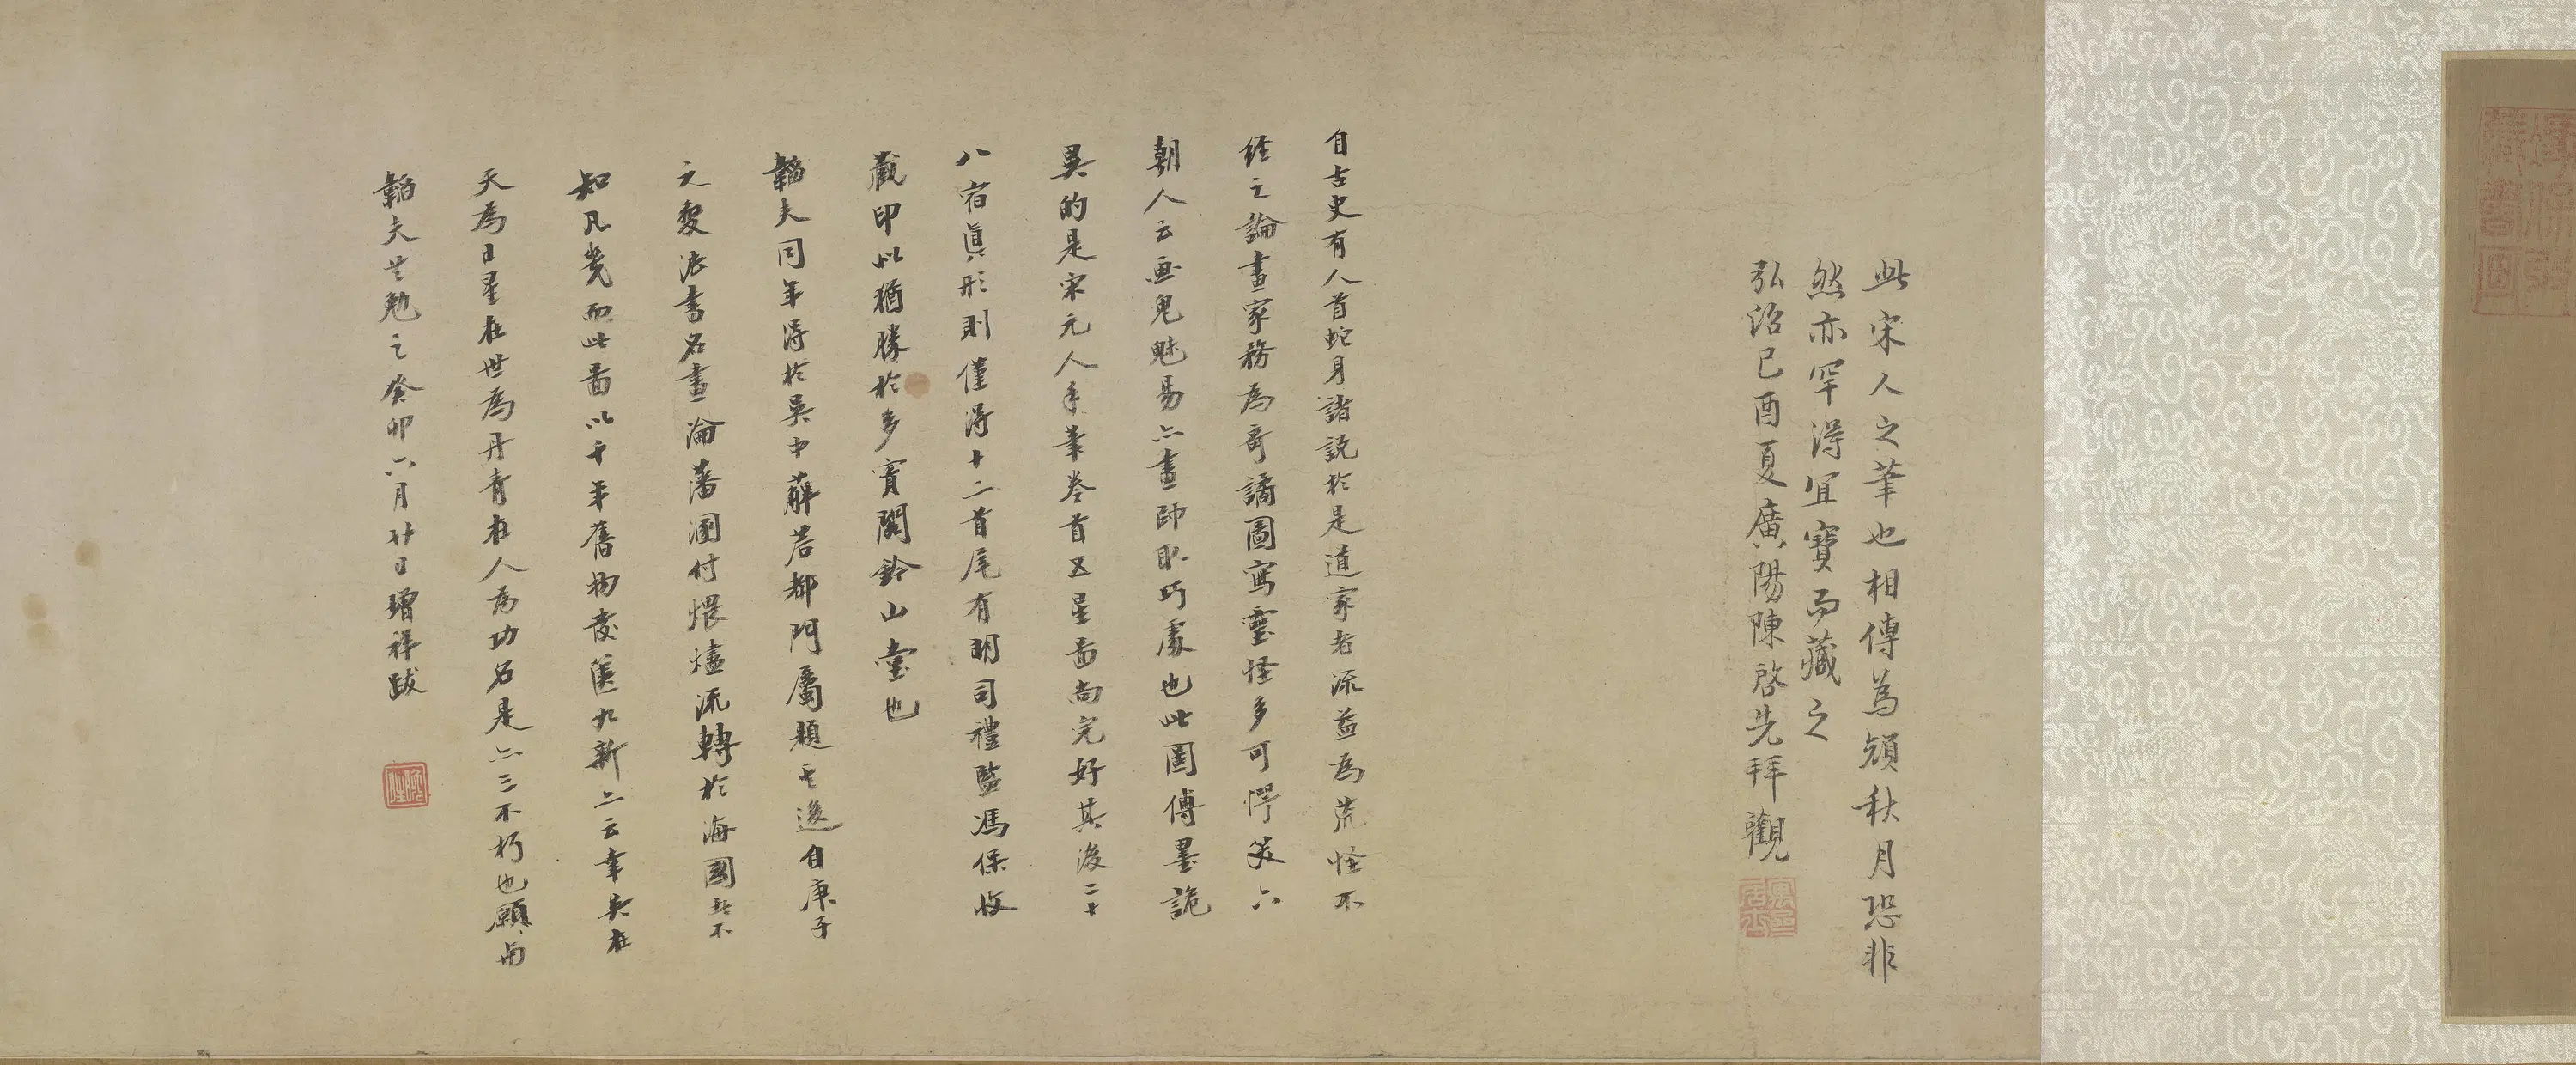 此宋人之筆也相傳為頎秋月恐非
然亦罕得宜寶而藏之
弘治己酉夏廣陽陳啓先拜觀
自古史有人首蛇身諸説於是道家者流益為荒怪不
經之論畫家務為奇譎圖寫靈怪多可愕笑六
朝人云画鬼魅易亦畫師取巧處也此圖傅墨詭
異的是宋元人手筆卷首五星啚尚完好其後二十
八宿真形則僅得十二首尾有明司禮監馮保收
藏印以猶勝於多寶閣鈐山堂也
韜夫同年得於吴中薜荔都門屬題其後自庚子
之變法書名畫淪藩溷付煨燼流轉於海國者不
知凡幾而此啚以千年舊物發匧如新亦云幸矣在
天為日星在世為丹青在人為功名是亦三不朽也願与
韜夫共勉之癸卯六月廿日增祥跋